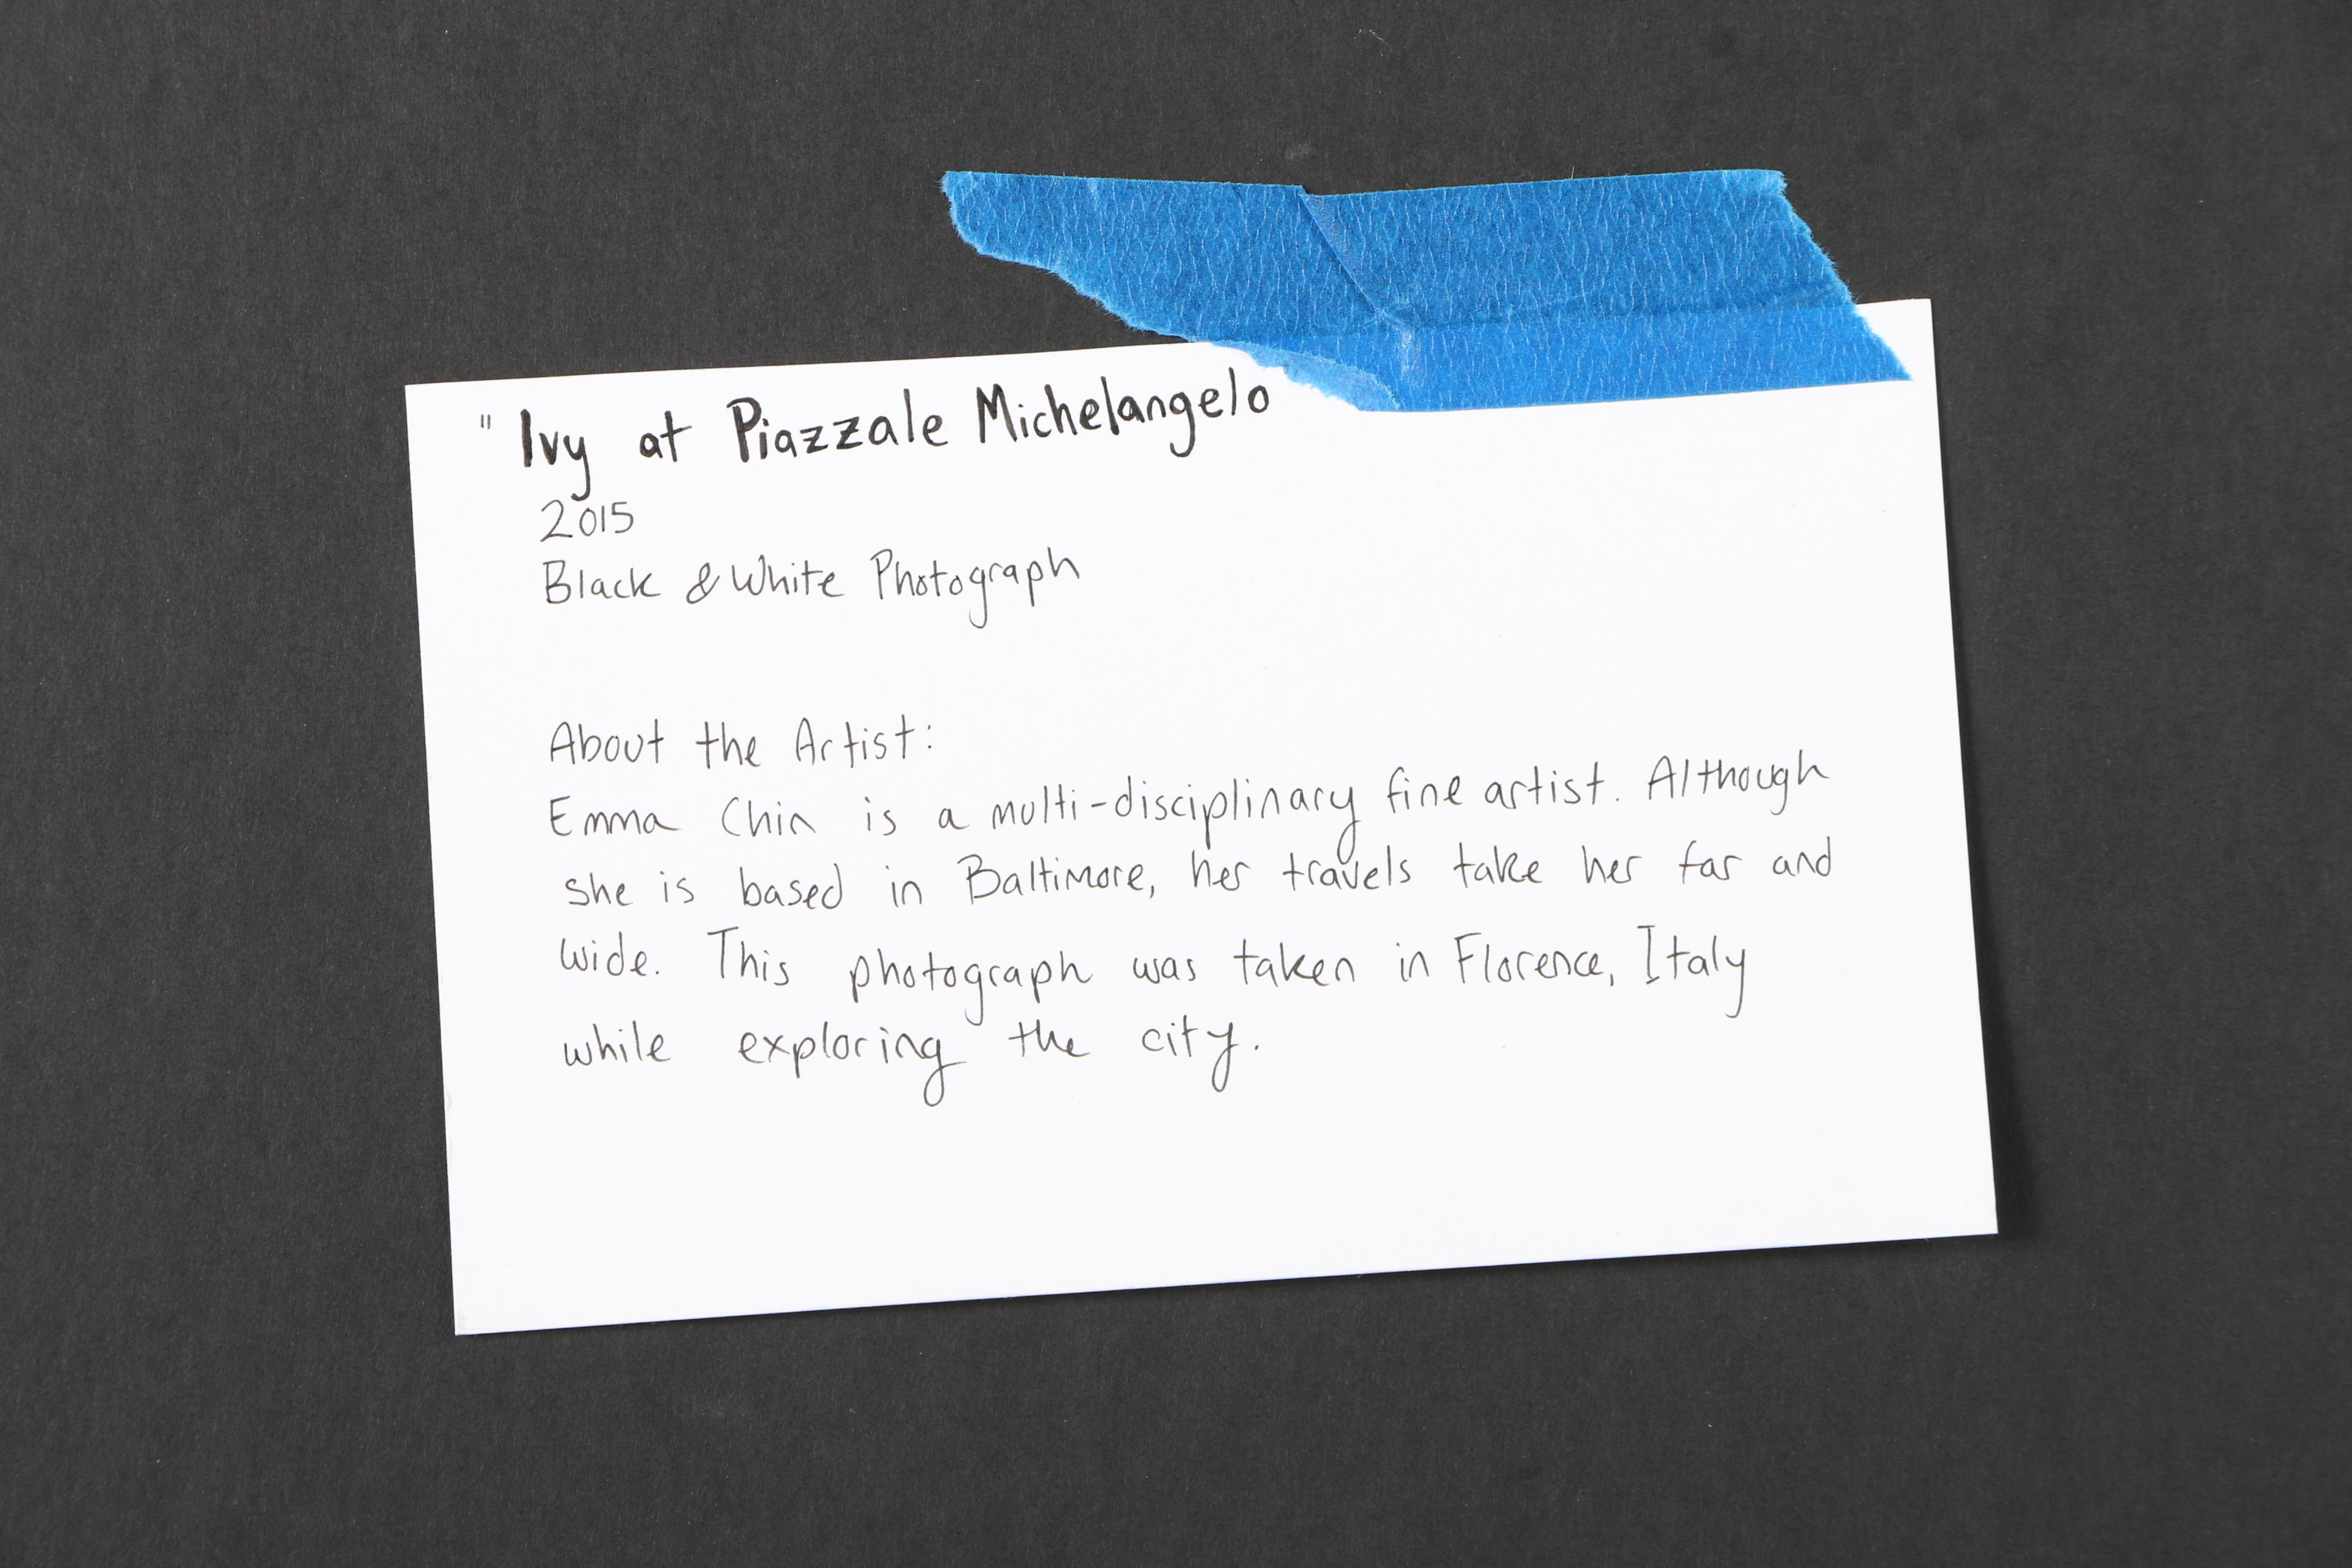 " Ivy at Piazzale Michelangelo
2015
Black & White Photograph
About the Artist:
Emma Chin is a multi-disciplinary fine artist. Although
she is based in Baltimore, her travels take her far and
wide. This photograph was taken in Florence, Italy
while exploring the city.